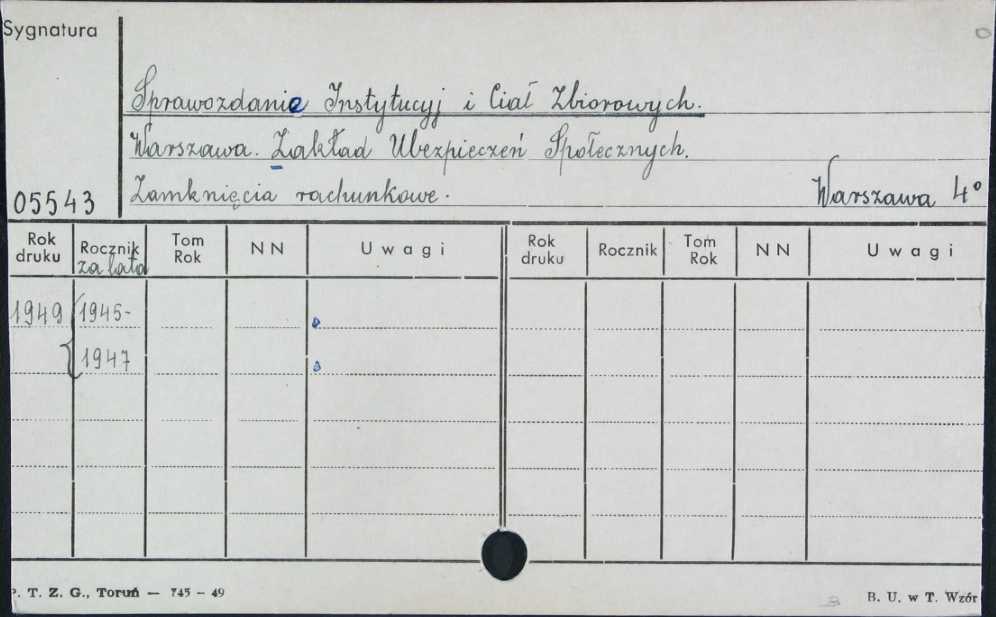 Sygnatura
Sprawozdanie Instytucyj i Ciał Zbiorowych.
Warszawa. Zakład Ubezpieczeń Społecznych.
05543 Zamknięcia rachunkowe. Warszawa 4°
Rok druku Rocznik za lata Tom Rok NN Uwagi Rok druku Rocznik Tom Rok NN Uwagi
1949 1945-
1947
P. T. Z. G., Toruń — 745 - 49 B. U. w T. Wzór